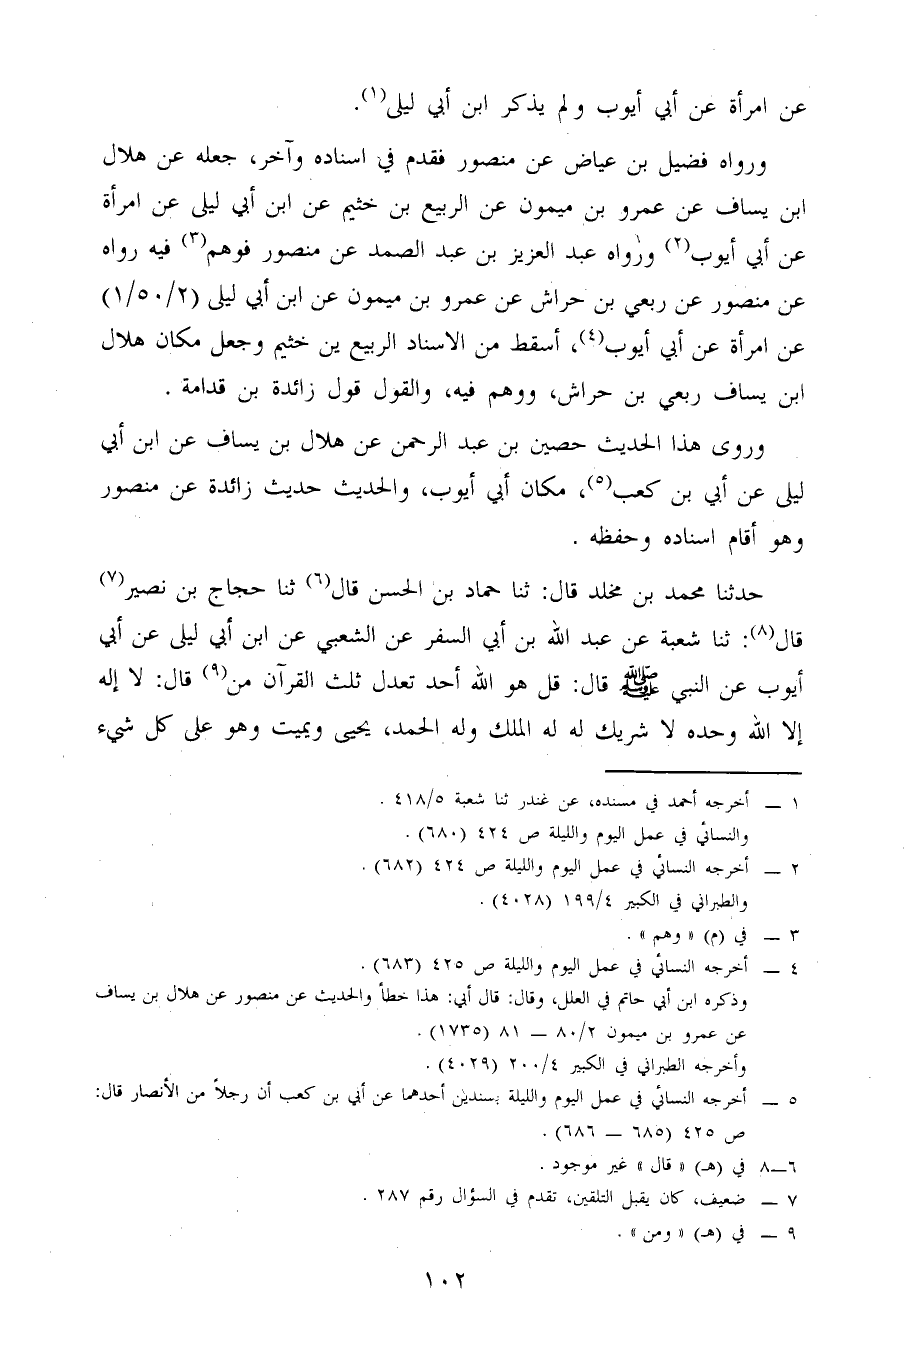 عن امرأة عن أبي أيوب ولم يذكر ابن أبي ليلى(١).
ورواه فضيل بن عياض عن منصور فقدم في اسناده وآخر، جعله عن هلال
ابن يساف عن عمرو بن ميمون عن الربيع بن خثيم عن ابن أبي ليلى عن امرأة
عن أبي أيوب(٢) ورواه عبد العزيز بن عبد الصمد عن منصور فوهم(٣) فيه رواه
عن منصور عن ربعي بن حراش عن عمرو بن ميمون عن ابن أبي ليلى (١/٥٠/٢)
عن امرأة عن أبي أيوب(٤)، أسقط من الاسناد الربيع ين خثيم وجعل مكان هلال
ابن يساف ربعي بن حراش، ووهم فيه، والقول قول زائدة بن قدامة .
وروى هذا الحديث حصين بن عبد الرحمن عن هلال بن يساف عن ابن أبي
ليلى عن أبي بن كعب(٥)، مكان أبي أيوب، والحديث حديث زائدة عن منصور
وهو أقام اسناده وحفظه .
حدثنا محمد بن مخلد قال: ثنا حماد بن الحسن قال(٦) ثنا حجاج بن نصير(٧)
قال(٨): ثنا شعبة عن عبد الله بن أبي السفر عن الشعبي عن ابن أبي ليلى عن أبي
أيوب عن النبي ﷺ قال: قل هو الله أحد تعدل ثلث القرآن من(٩) قال: لا إله
إلا الله وحده لا شريك له له الملك وله الحمد، يحيى ويميت وهو على كل شيء
١ — أخرجه أحمد في مسنده، عن غندر ثنا شعبة ٤١٨/٥ .
والنسائي في عمل اليوم والليلة ص ٤٢٤ (٦٨٠) .
٢ — أخرجه النسائي في عمل اليوم والليلة ص ٤٢٤ (٦٨٢) .
والطبراني في الكبير ١٩٩/٤ (٤٠٢٨) .
٣ — في (م) «وهم» .
٤ — أخرجه النسائي في عمل اليوم والليلة ص ٤٢٥ (٦٨٣) .
وذكره ابن أبي حاتم في العلل، وقال: قال أبي: هذا خطأ والحديث عن منصور عن هلال بن يساف
عن عمرو بن ميمون ٨٠/٢ — ٨١ (١٧٣٥) .
وأخرجه الطبراني في الكبير ٢٠٠/٤ (٤٠٢٩) .
٥ — أخرجه النسائي في عمل اليوم والليلة بسندين أحدهما عن أبي بن كعب أن رجلاً من الأنصار قال:
ص ٤٢٥ (٦٨٥ — ٦٨٦) .
٦—٨ في (هـ) «قال» غير موجود .
٧ — ضعيف، كان يقبل التلقين، تقدم في السؤال رقم ٢٨٧ .
٩ — في (هـ) «ومن» .
١٠٢